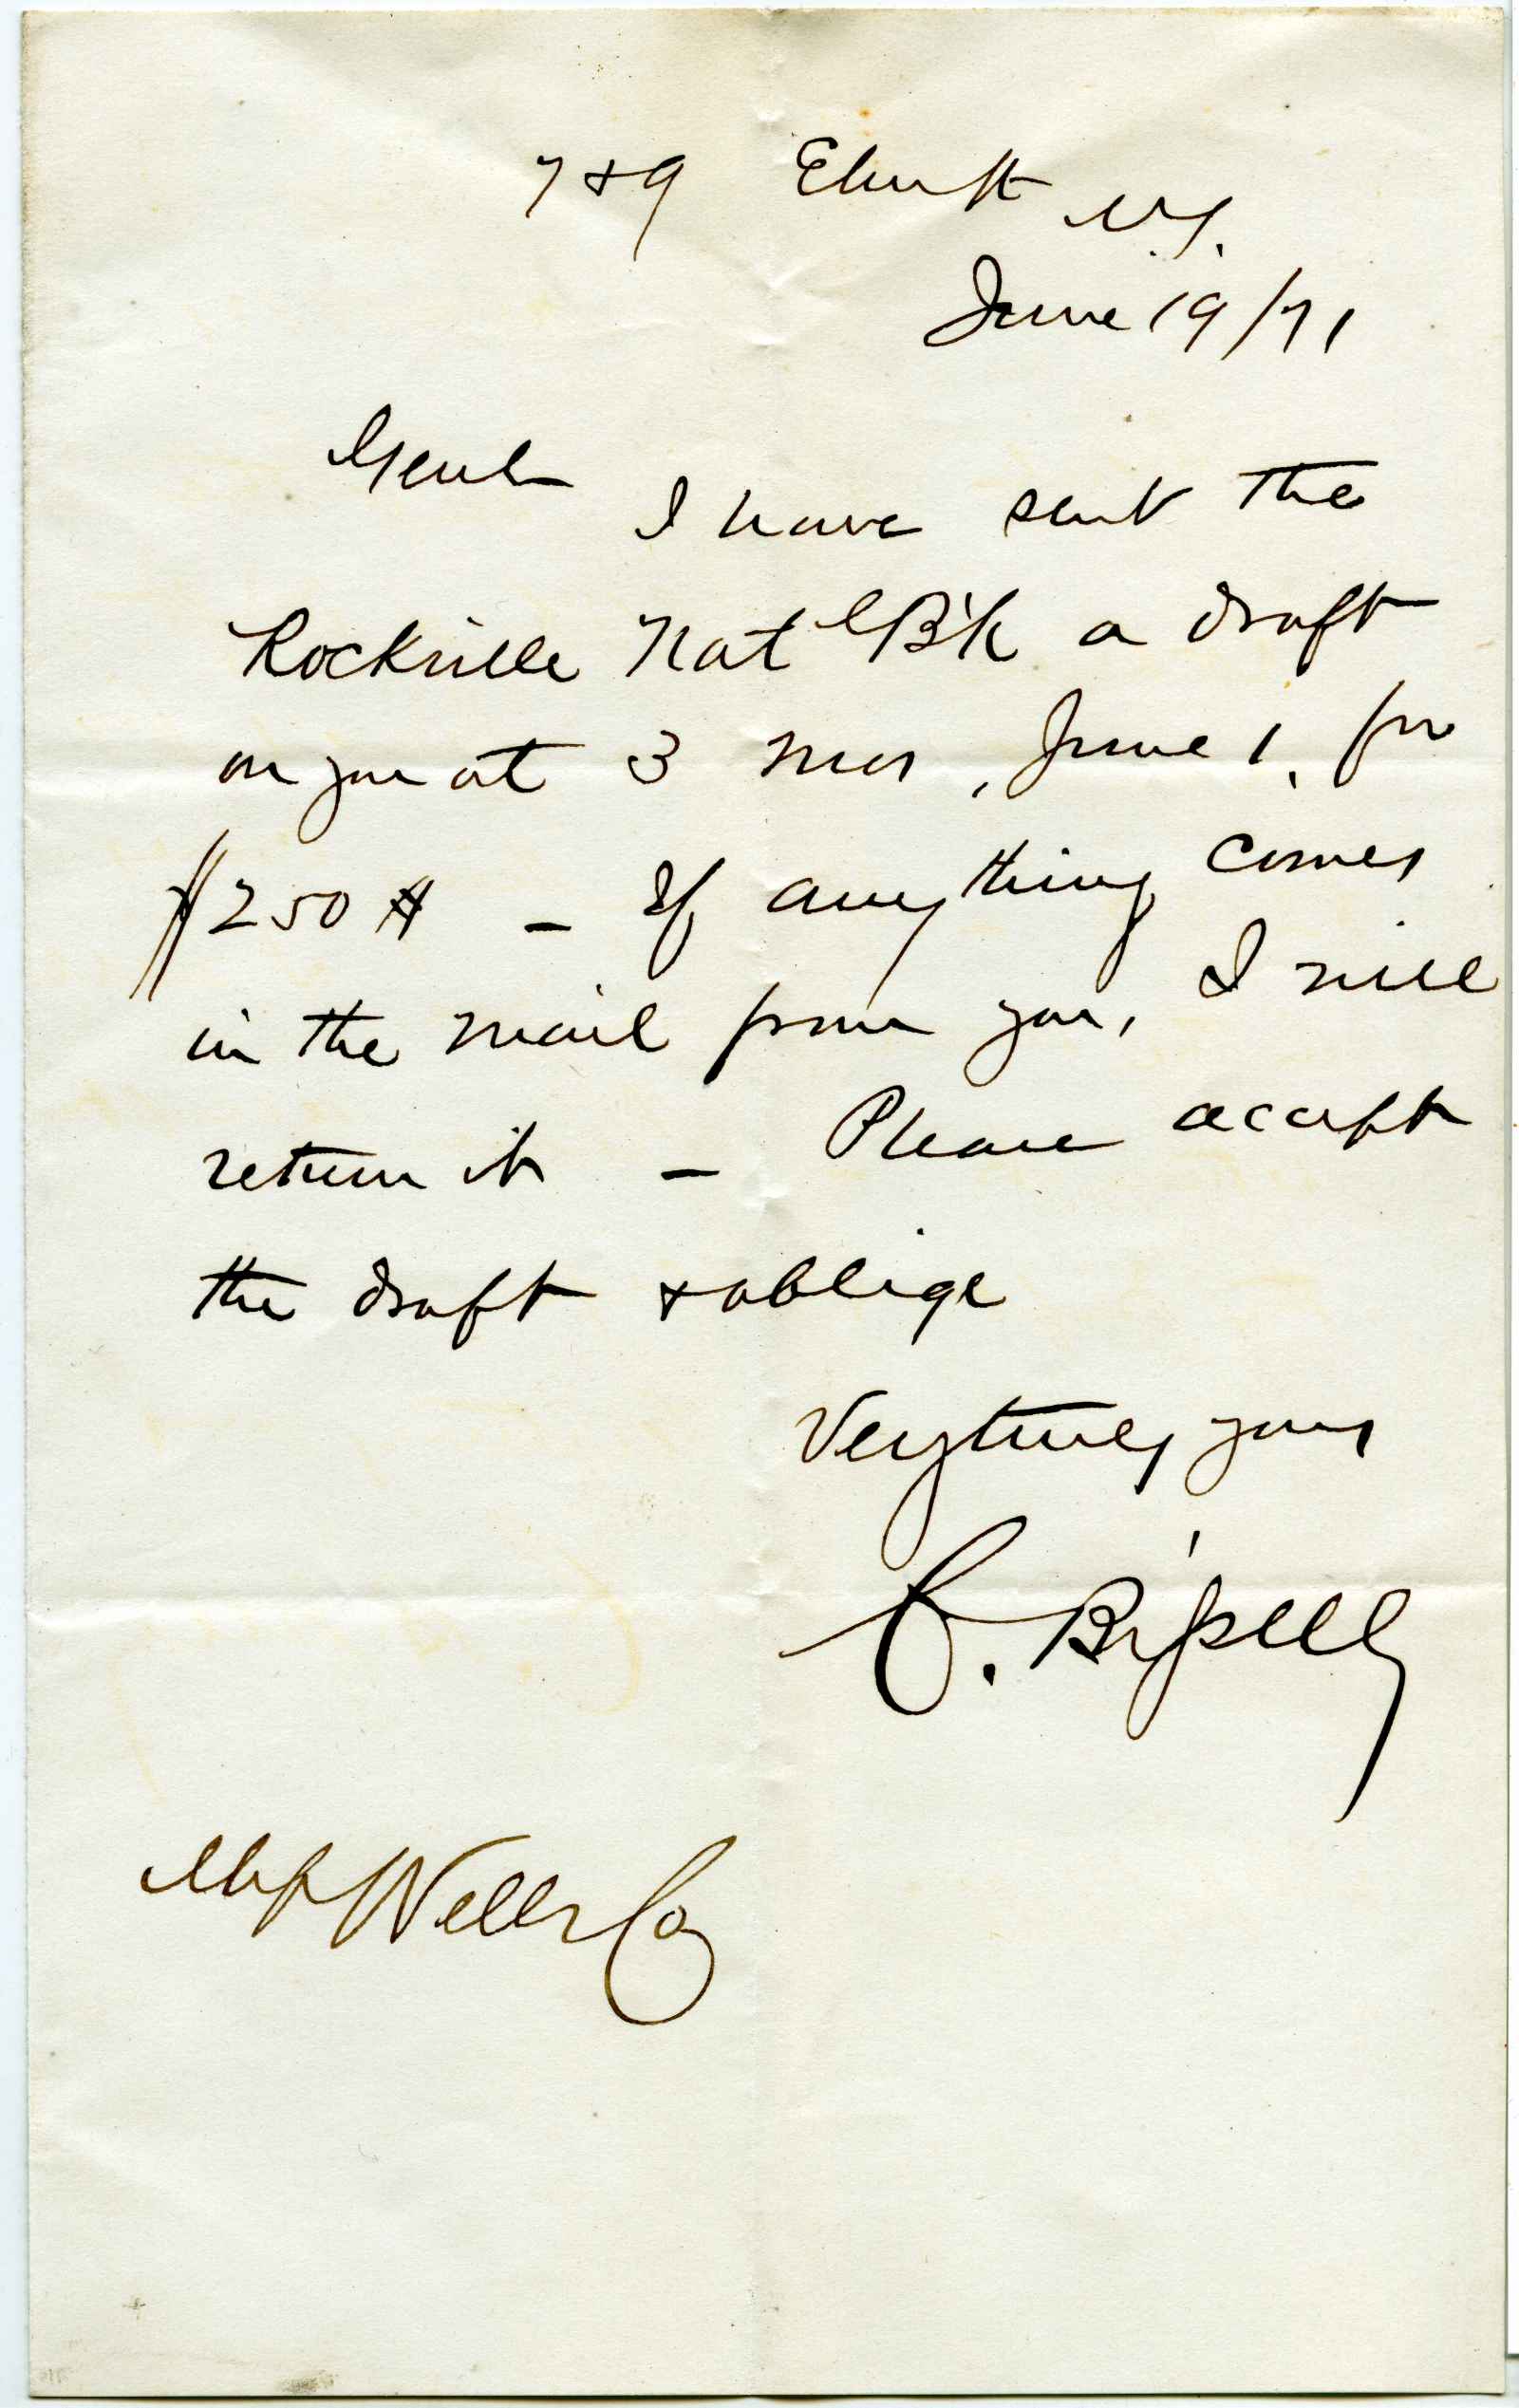 7 & 9 Elm St N.Y.
June 19/71
Gents
I have sent the
Rockville Natl B'k a draft
on you at 3 mos, June 1, for
$250 # – If anything comes
in the mail from you, I will
return it – Please accept
the draft & oblige
Very truly yours
C. Bissell
Wells Co